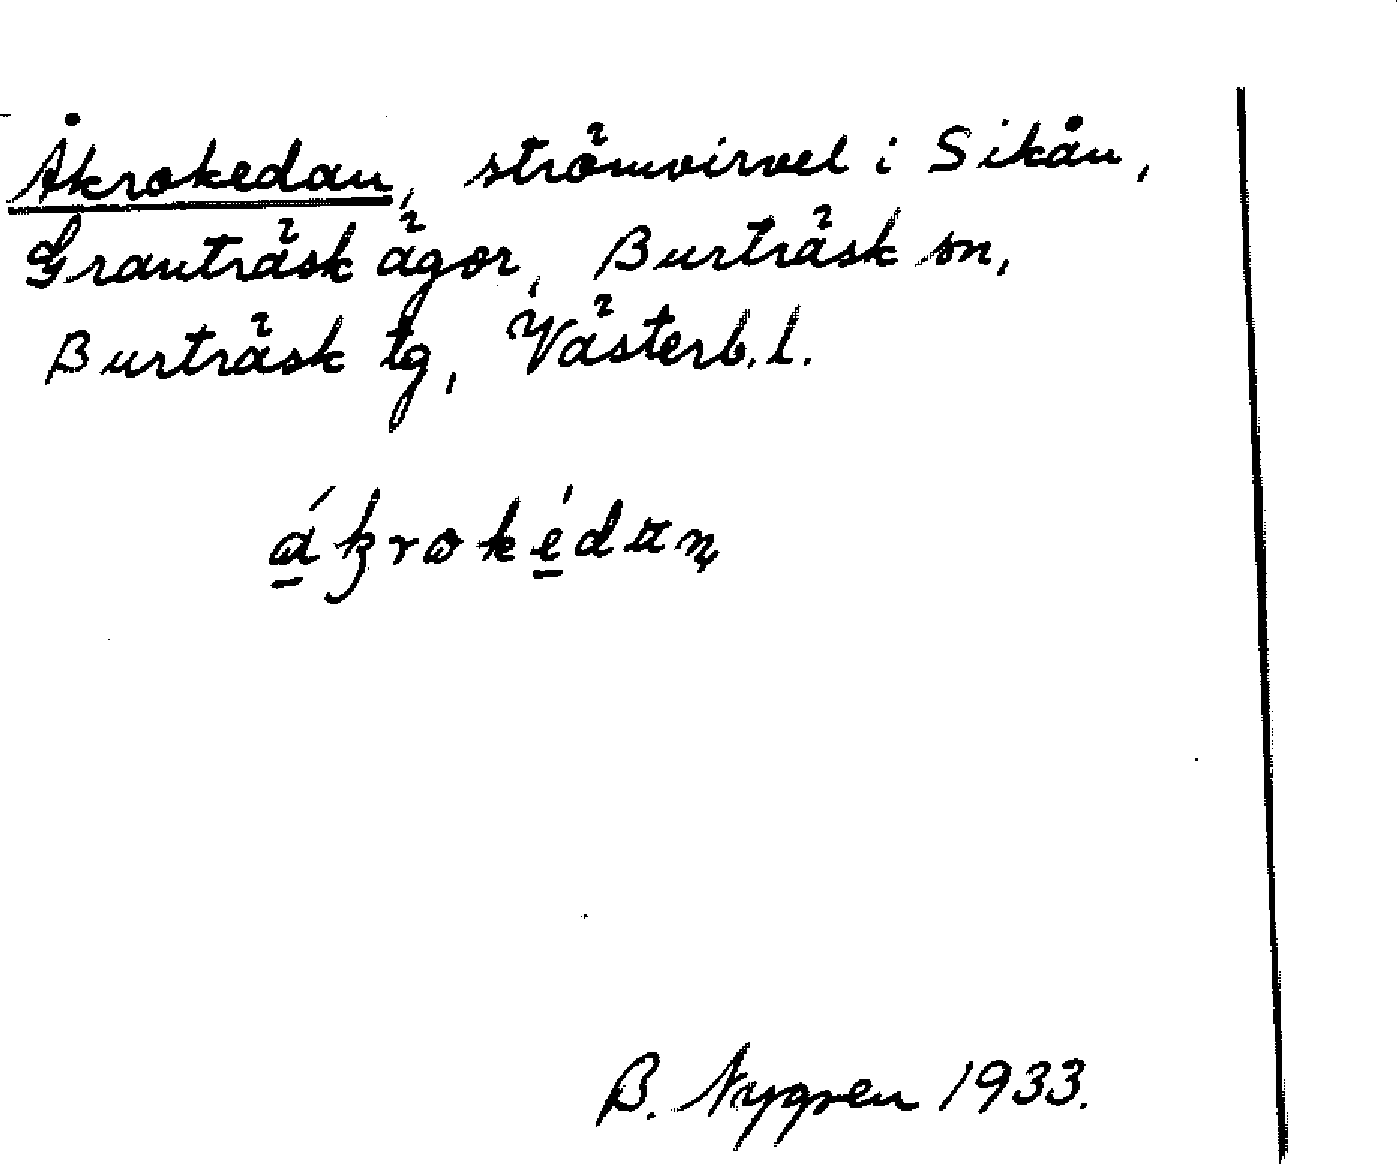 Åkrokedan, strömvirvel i Sikån,
Granträsk ägor, Burträsk sn,
Burträsk tg, Västerb. l.
B. Nygren 1933.